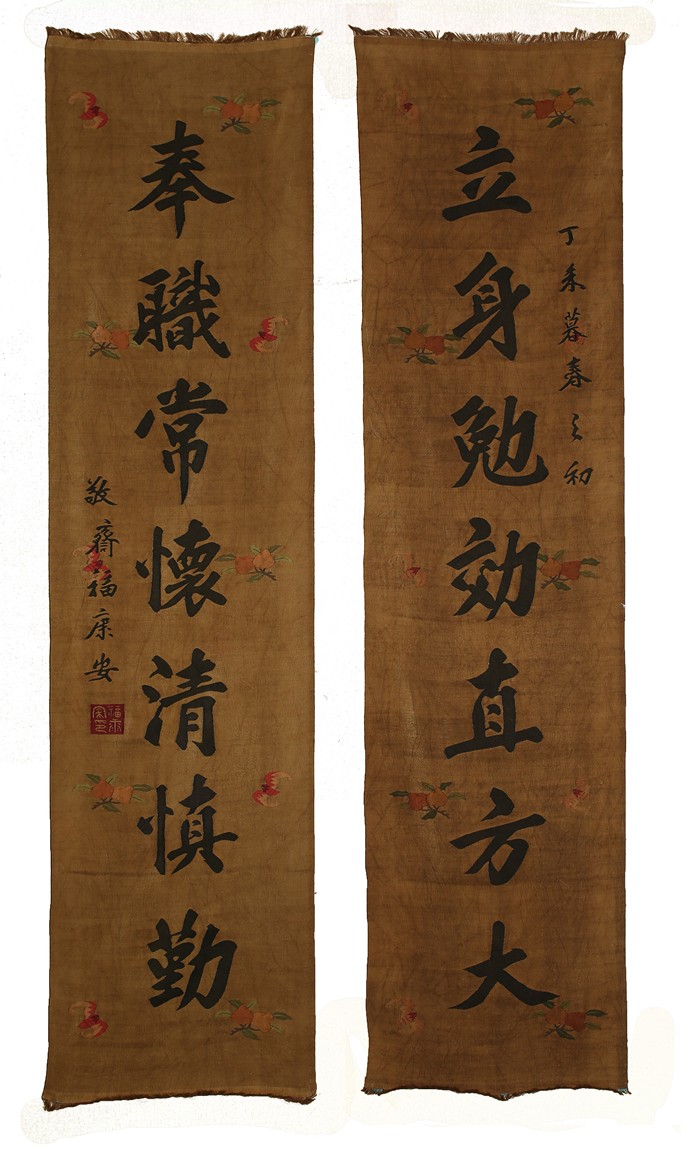 丁未暮春之初
立身勉効直方大
奉職常懷清慎勤
敬齋福康安